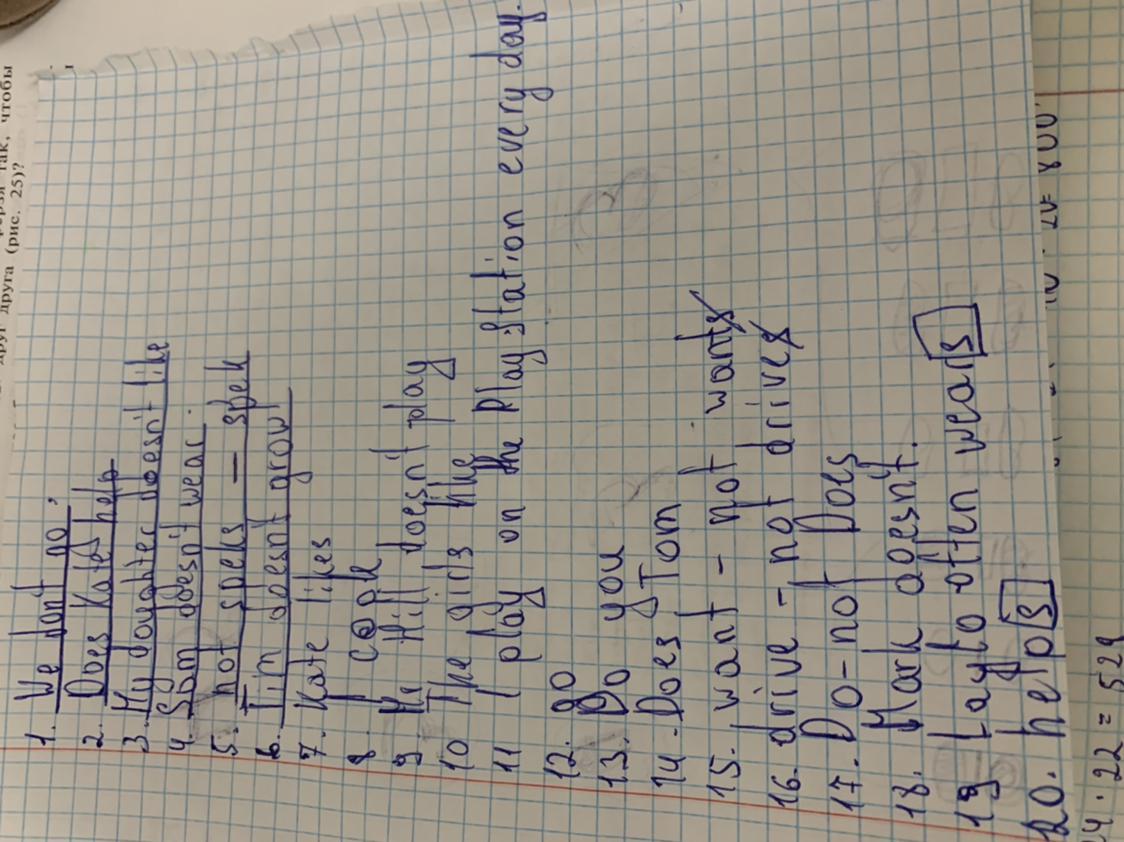 друг друга (рис. 25)?
так, чтобы
1. We don't go.
2. Does Kate help
3. My doughter doesn't like
4. Sam doesn't wear.
5. not speks — spek
6. Tim doesn't grow
7. Kate likes
8. I cook
9. Mr Hill doesn't play
10 The girls like
11 play on the PlayStation every day.
12. go
13. Do you
14. Does Tom
15. want - not wants
16. drive - not drives
17. Do - not Does
18. Mark doesn't.
19 Layfo often wears
20. helps
24 · 22 = 528